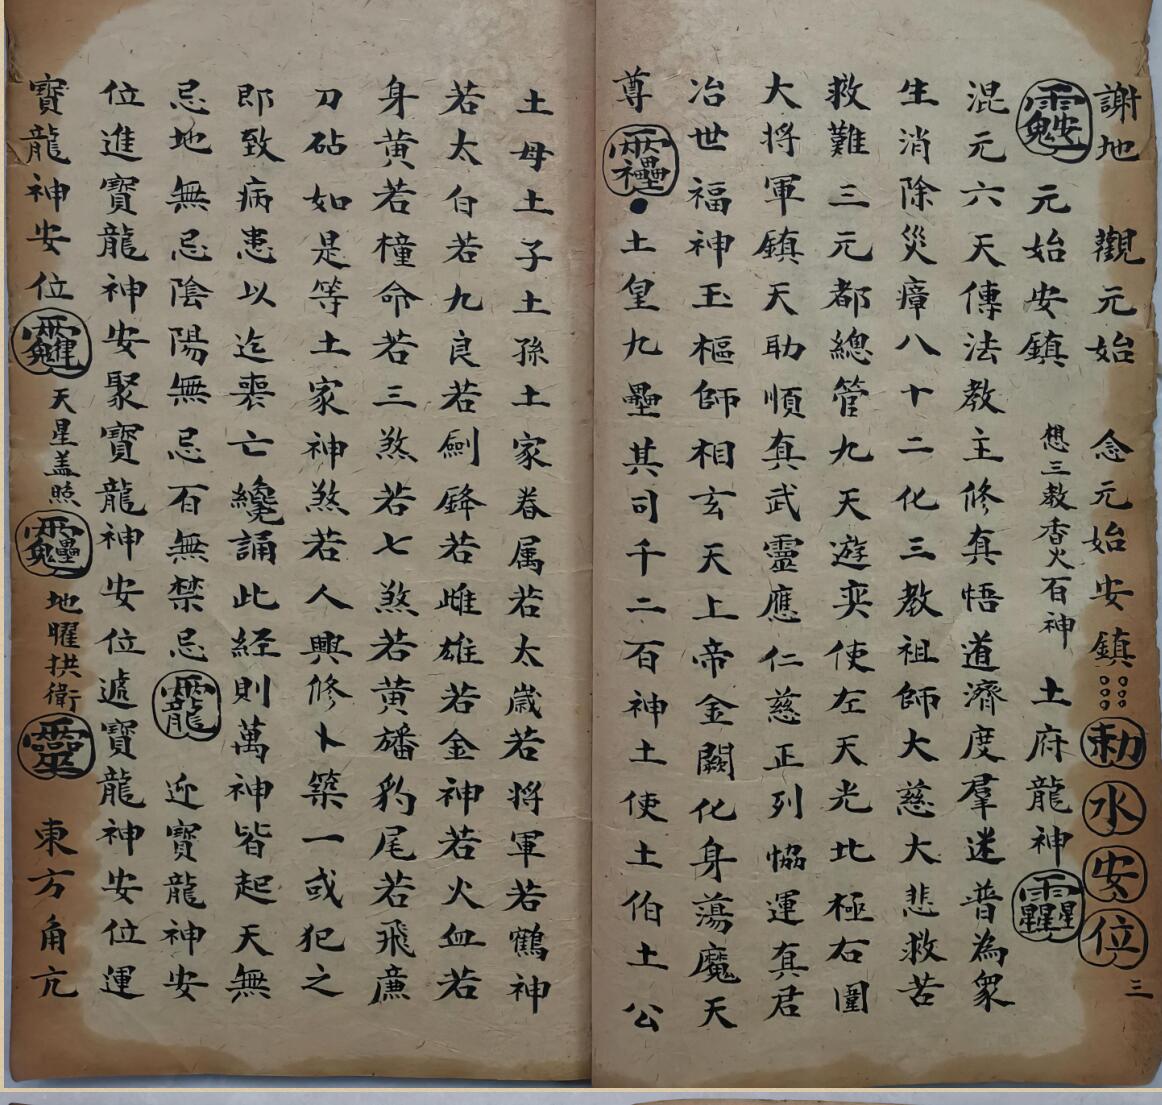 謝地　觀元始　念元始安鎮勅水安位三
元始安鎮　想三教香火百神　土府龍神
混元六天傳法教主修真悟道濟度羣迷普為衆
生消除災瘴八十二化三教祖師大慈大悲救苦
救難三元都總管九天遊奕使左天光北極右圍
大將軍鎮天助順真武靈應仁慈正列恊運真君
冶世福神玉樞師相玄天上帝金闕化身蕩魔天
尊土皇九壘其司千二百神土使土伯土公
土母土子土孫土家眷属若太歲若將軍若鶴神
若太白若九良若劍鋒若雌雄若金神若火血若
身黃若橦命若三煞若七煞若黄旛豹尾若飛廉
刀砧如是等土家神煞若人興修卜築一或犯之
即致病患以迄喪亡纔誦此経則萬神皆起天無
忌地無忌陰陽無忌百無禁忌　迎寶龍神安
位進寶龍神安聚寶龍神安位遞寶龍神安位運
寶龍神安位　天星盖照　地曜拱衛　東方角亢